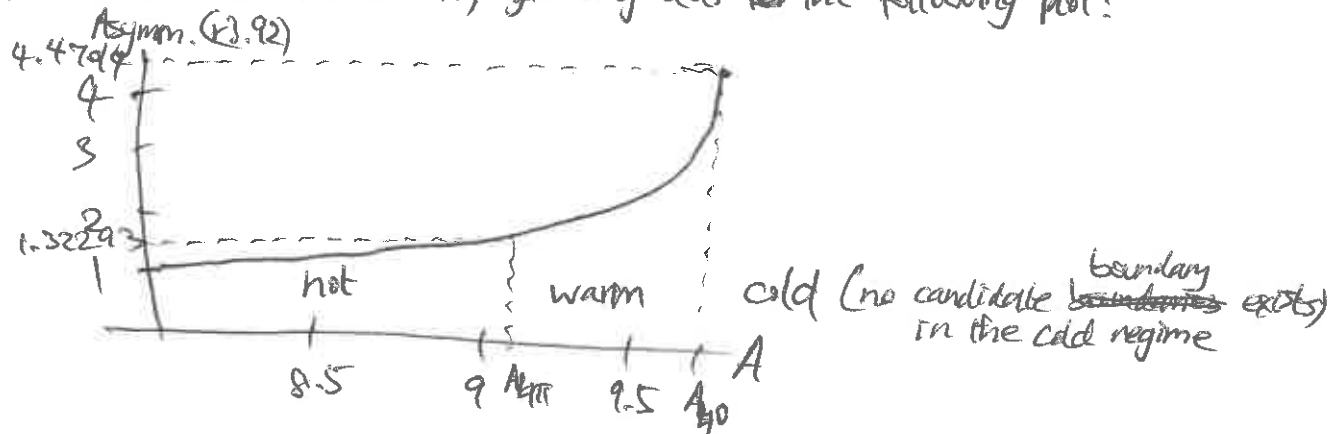 the following plot:
Asymm. (r3.92)
4.4704
4
3
2
1.32293
1
hot
warm
cold (no candidate boundary exists)
in the cold regime
8.5
9
9.5
A